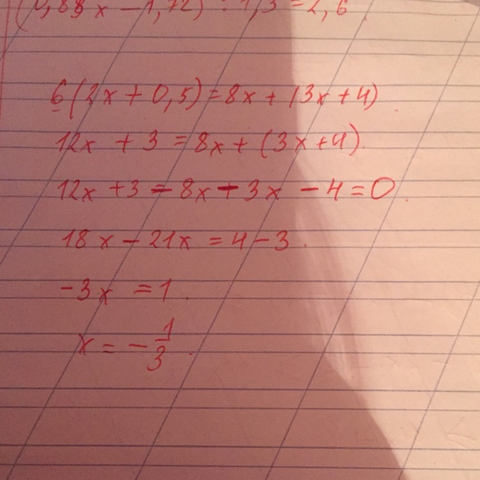 (0,88x - 1,72) : 1,3 = 2,6
6(2x + 0,5) = 8x + (3x + 4)
12x + 3 = 8x + (3x + 4)
12x + 3 - 8x - 3x - 4 = 0
18x - 21x = 4 - 3
-3x = 1
x = - 1/3